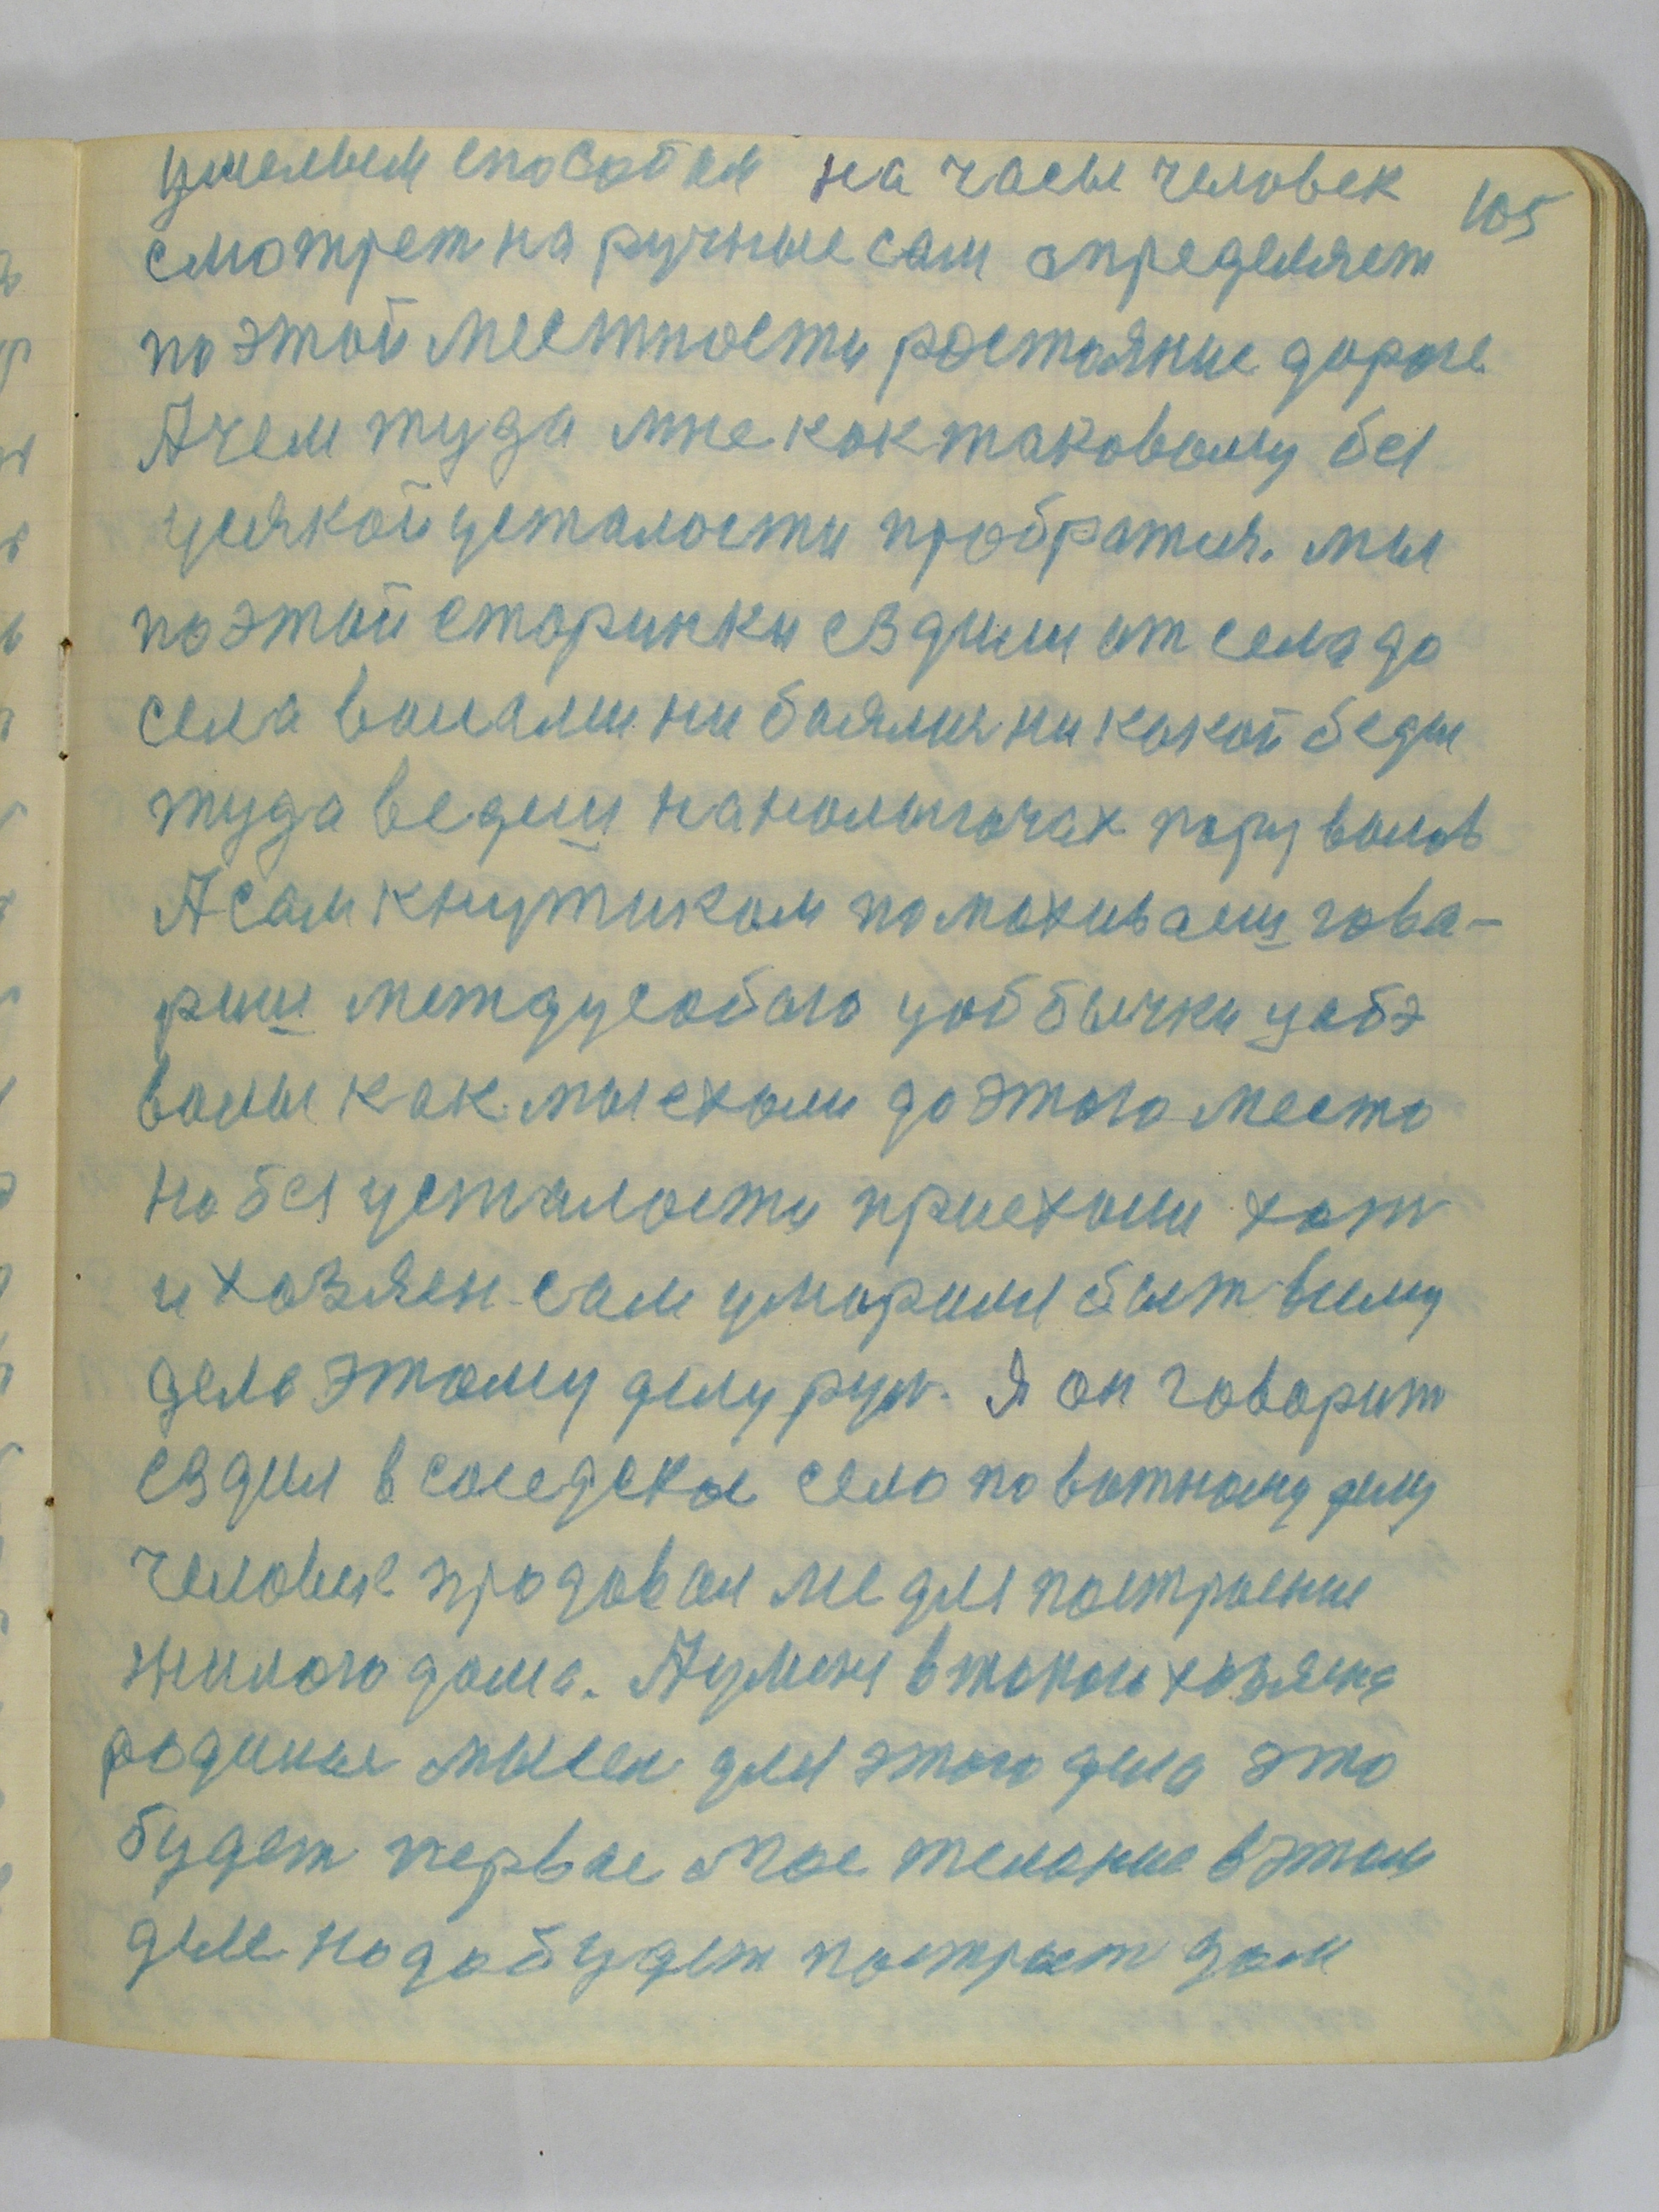 умелым способом на часы человек
105
смотрет на ручные сам определяет
по этой местности ростояние дороге.
А чем туда мне как таковому без
усякой усталости пробратся. мы
по этой сторинки ездили от села до
села волами ни боялися ни какой беды
туда ведеш на налыгачах пару волов
А сам кнутиком помахиваеш гова-
риш между собою цоб бычки цобэ
волы как мы ехали до этого место
но без усталости приехали хот
и хозяен сам уморился быт всему
дело этому делу рук. Я он говорит
ездил в соседское село по ватному делу
человек продавал ме для построение
жилого дома. А у меня в такого хозяена
родилас мысел для этого дела это
будет первое мое желание в этом
деле надо будет построет дом